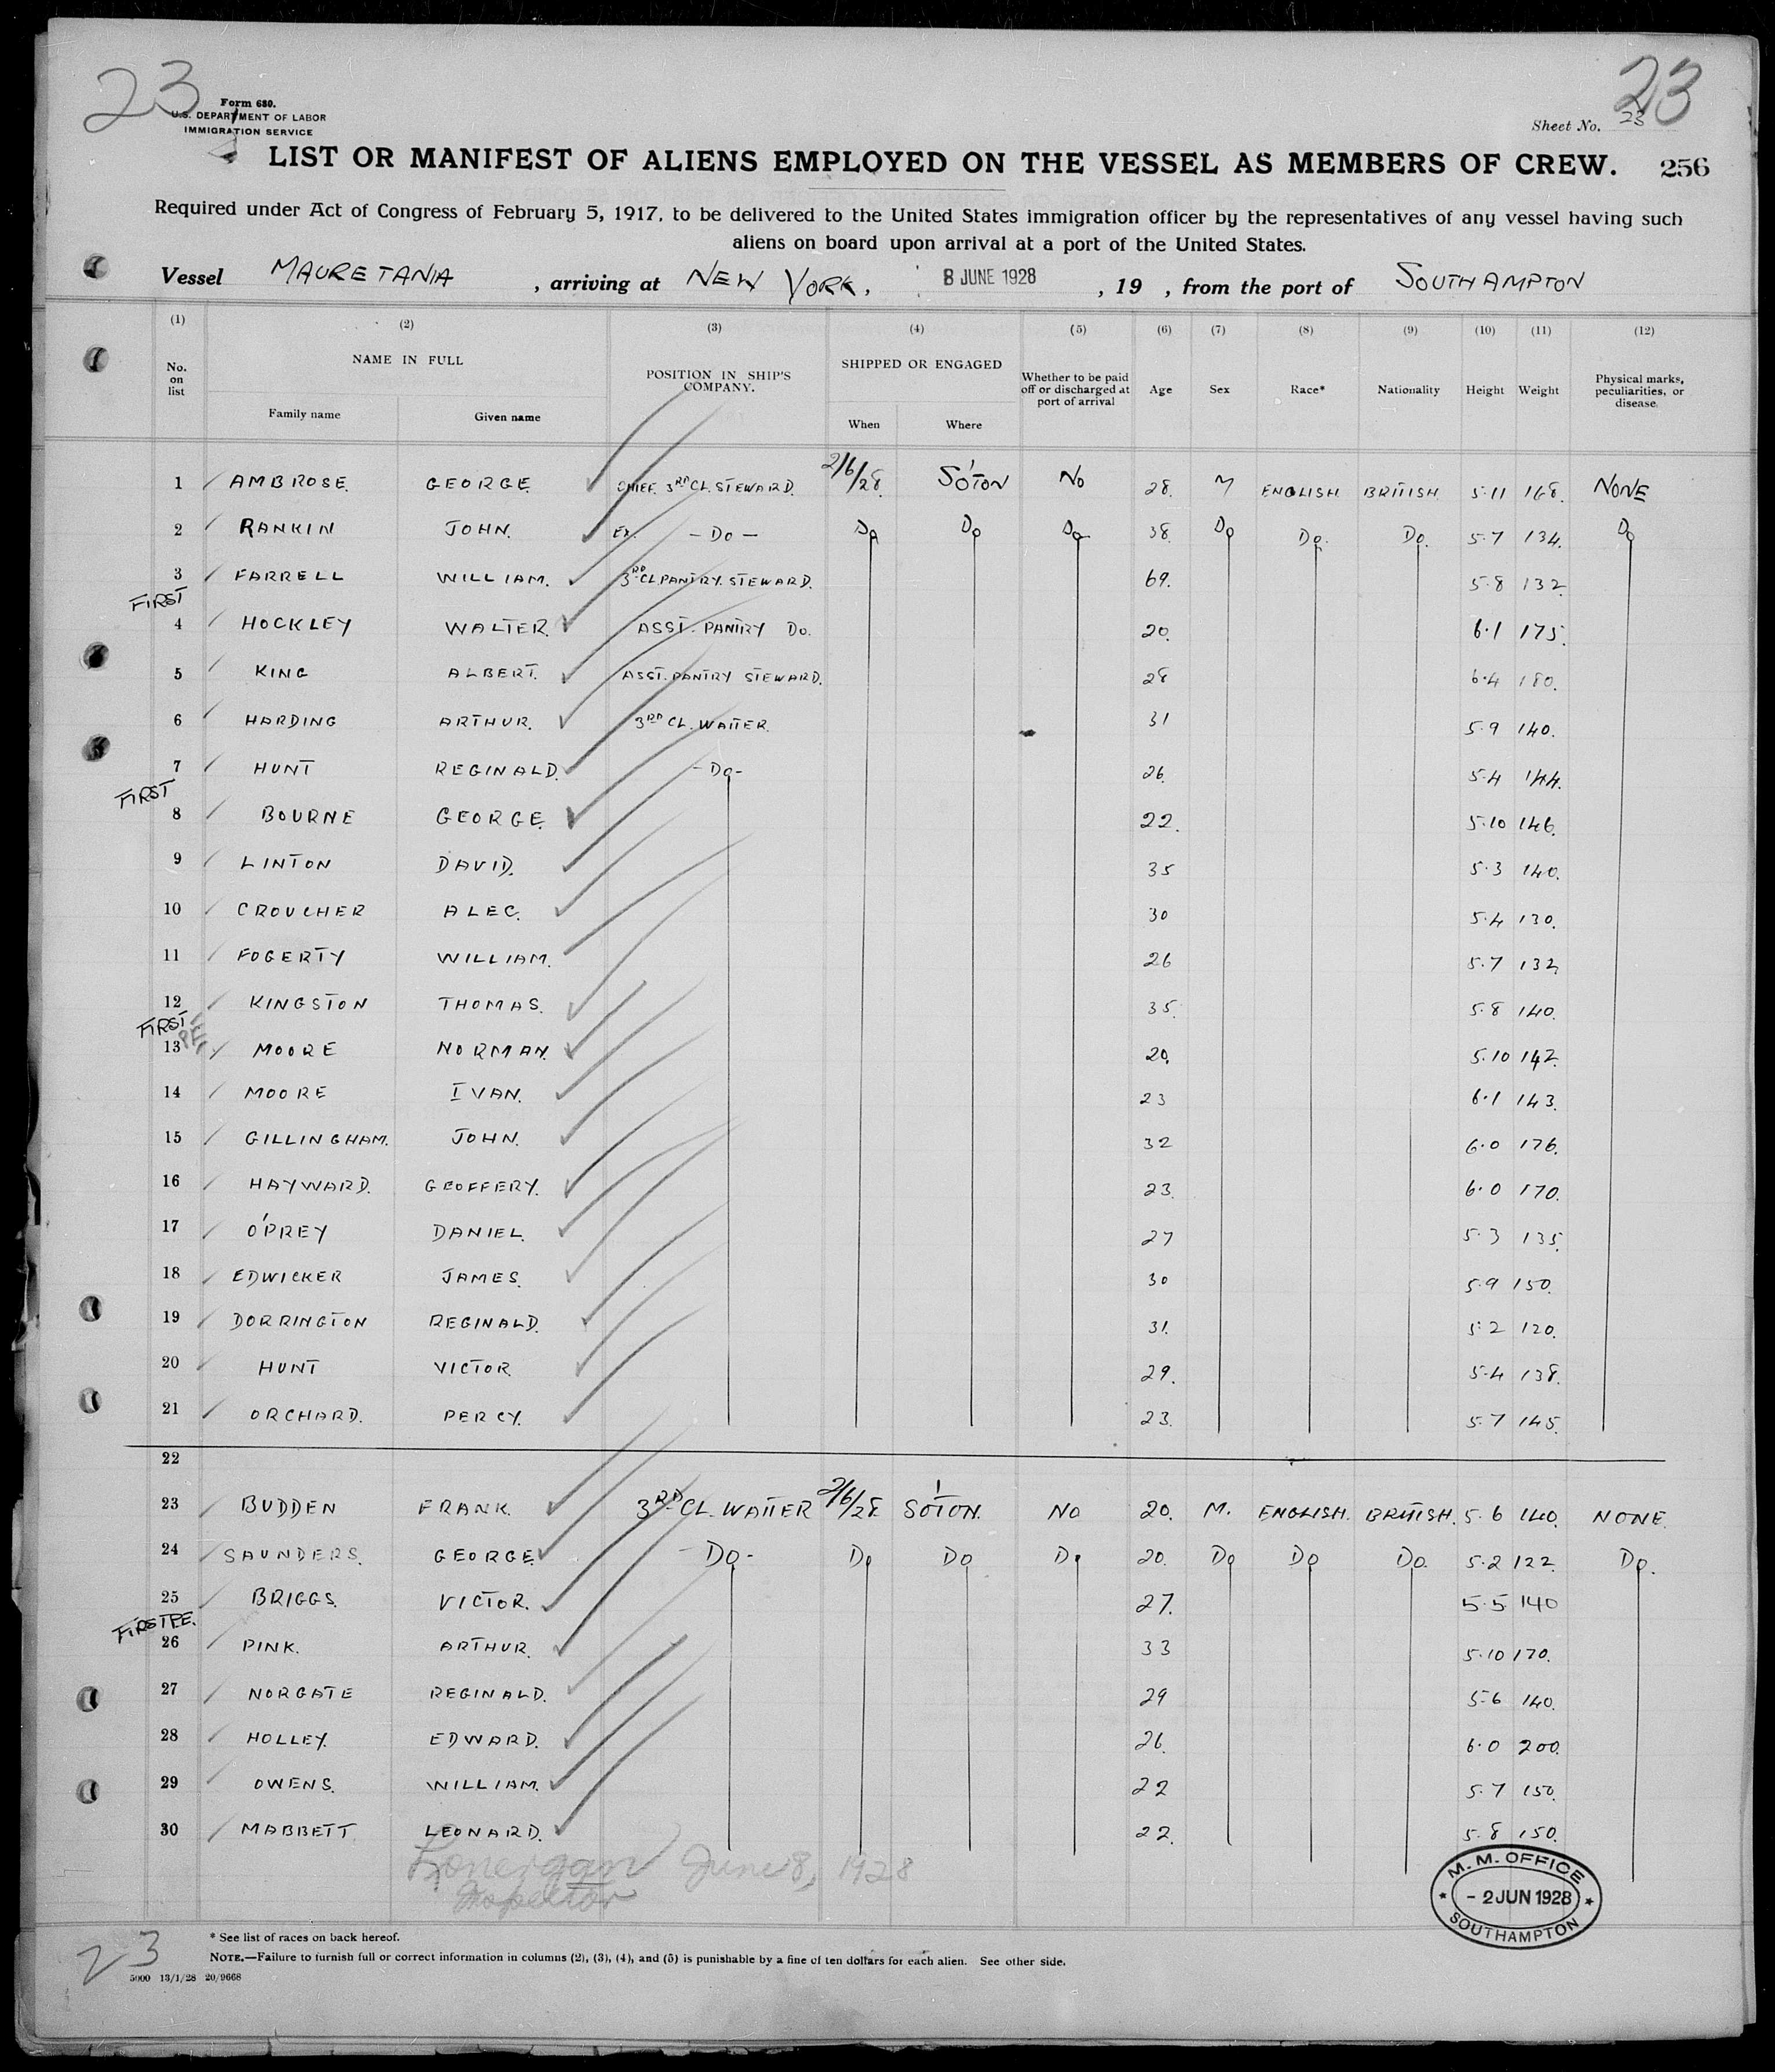 23
23
Form 680.
U.S. DEPARTMENT OF LABOR
IMMIGRATION SERVICE
Sheet No. 23
LIST OR MANIFEST OF ALIENS EMPLOYED ON THE VESSEL AS MEMBERS OF CREW. 256
Required under Act of Congress of February 5, 1917, to be delivered to the United States immigration officer by the representatives of any vessel having such
aliens on board upon arrival at a port of the United States.
Vessel MAURETANIA, arriving at NEW YORK, 8 JUNE 1928, 19 , from the port of SOUTHAMPTON
(1) (2) (3) (4) (5) (6) (7) (8) (9) (10) (11) (12)
No. on list NAME IN FULL Family name Given name POSITION IN SHIP'S COMPANY. SHIPPED OR ENGAGED When Where Whether to be paid off or discharged at port of arrival Age Sex Race* Nationality Height Weight Physical marks, peculiarities, or disease.
1 AMBROSE. GEORGE. CHIEF. 3RD CL. STEWARD. 2/6/28. SO'TON NO 28. M ENGLISH. BRITISH. 5.11 168. NONE
2 RANKIN JOHN. — DO — DO DO DO 38. DO DO. DO. 5.7 134. DO
3 FARRELL WILLIAM. 3RD CL PANTRY. STEWARD. 69. 5.8 132.
FIRST
4 HOCKLEY WALTER. ASST. PANTRY DO. 20. 6.1 175.
5 KING ALBERT. ASST. PANTRY STEWARD. 28 6.4 180.
6 HARDING ARTHUR. 3RD CL. WAITER. 31 5.9 140.
7 HUNT REGINALD. -DO- 26. 5.4 144.
FIRST
8 BOURNE GEORGE. 22. 5.10 146.
9 LINTON DAVID. 35 5.3 140.
10 CROUCHER ALEC. 30 5.4 130.
11 FOGERTY WILLIAM. 26 5.7 132
12 KINGSTON THOMAS. 35. 5.8 140.
FIRST
13 MOORE NORMAN. 20. 5.10 142.
14 MOORE IVAN. 23 6.1 143.
15 GILLINGHAM. JOHN. 32 6.0 176.
16 HAYWARD. GEOFFERY. 23. 6.0 170.
17 O'PREY DANIEL. 27 5.3 135.
18 EDWICKER JAMES. 30 5.9 150.
19 DORRINGTON REGINALD. 31. 5.2 120.
20 HUNT VICTOR. 29. 5.4 138.
21 ORCHARD. PERCY. 23. 5.7 145.
22
23 BUDDEN FRANK. 3RD CL. WAITER 2/6/28 SO'TON. NO 20. M. ENGLISH. BRITISH. 5.6 140. NONE.
24 SAUNDERS. GEORGE -DO- DO DO DO 20. DO DO DO. 5.2 122. DO.
25 BRIGGS. VICTOR. 27. 5.5 140
FIRST
26 PINK. ARTHUR. 33 5.10 170.
27 NORGATE REGINALD. 29 5.6 140.
28 HOLLEY. EDWARD. 26. 6.0 200.
29 OWENS. WILLIAM. 22 5.7 150.
30 MABBETT LEONARD. 22. 5.8 150.
Lonergan June 8, 1928
Inspector
M. M. OFFICE
- 2 JUN 1928
SOUTHAMPTON
* See list of races on back hereof.
NOTE.—Failure to furnish full or correct information in columns (2), (3), (4), and (5) is punishable by a fine of ten dollars for each alien. See other side.
23
5000 13/1/28 20/9668